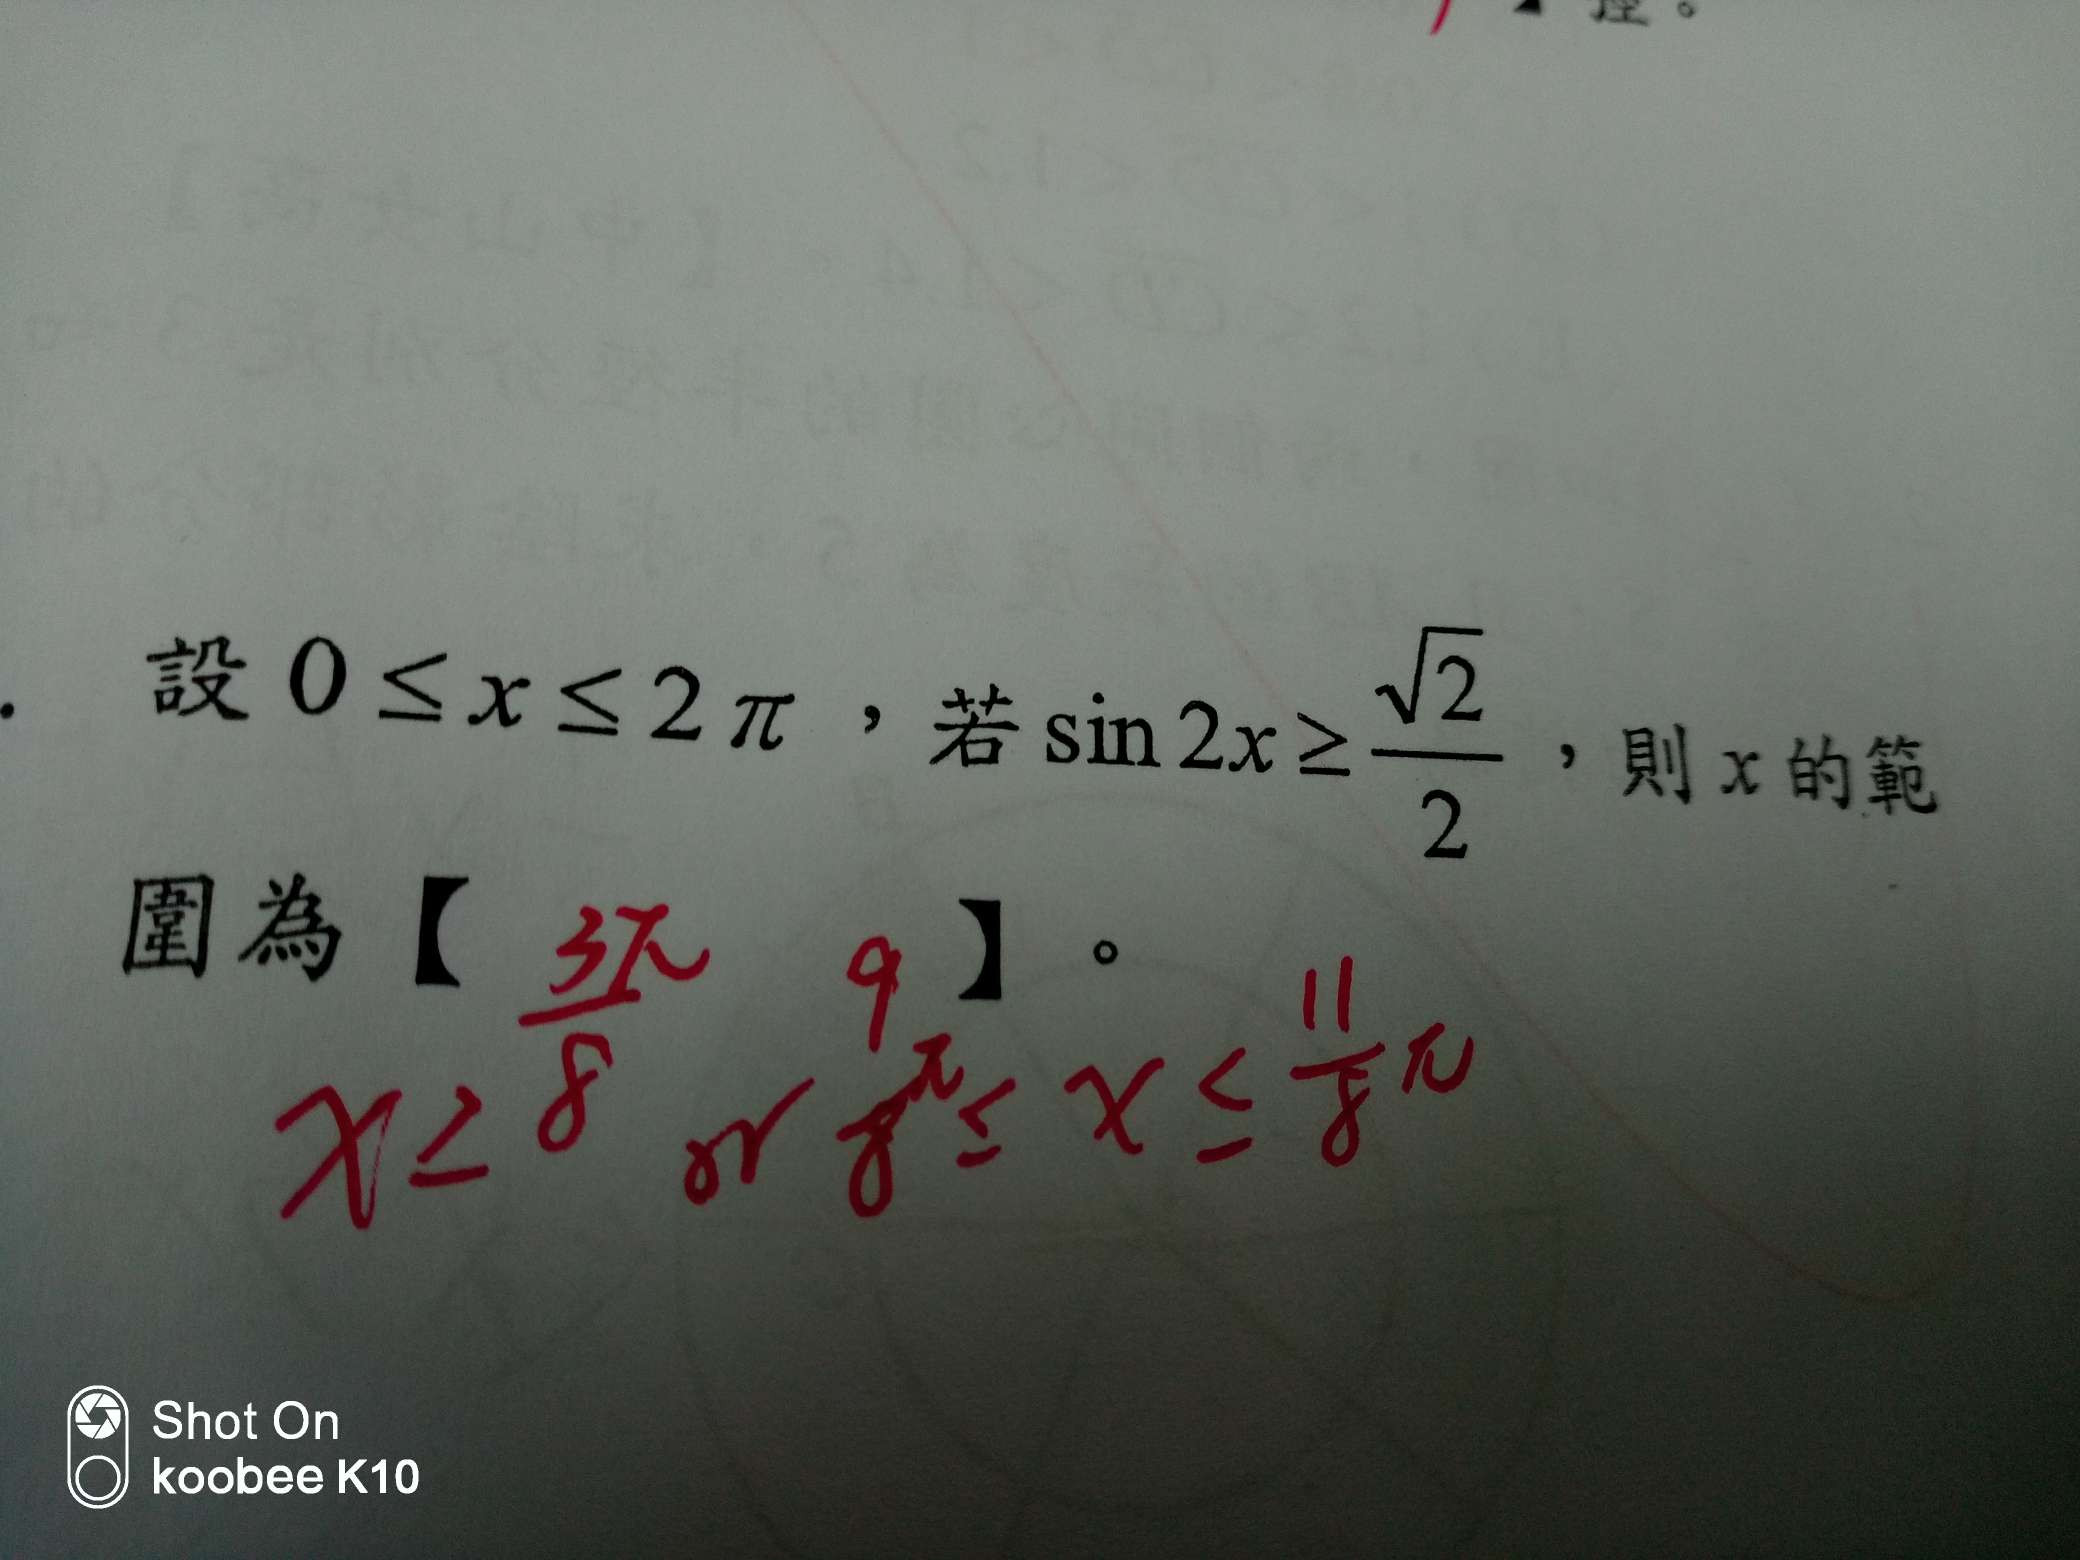 】控。
. 設 0 ≤ x ≤ 2π，若 sin 2x ≥ √2/2，則 x 的範
圍為【 】。
x ≥ 3π/8 or 9/8 π ≤ x ≤ 11/8 π
Shot On
koobee K10